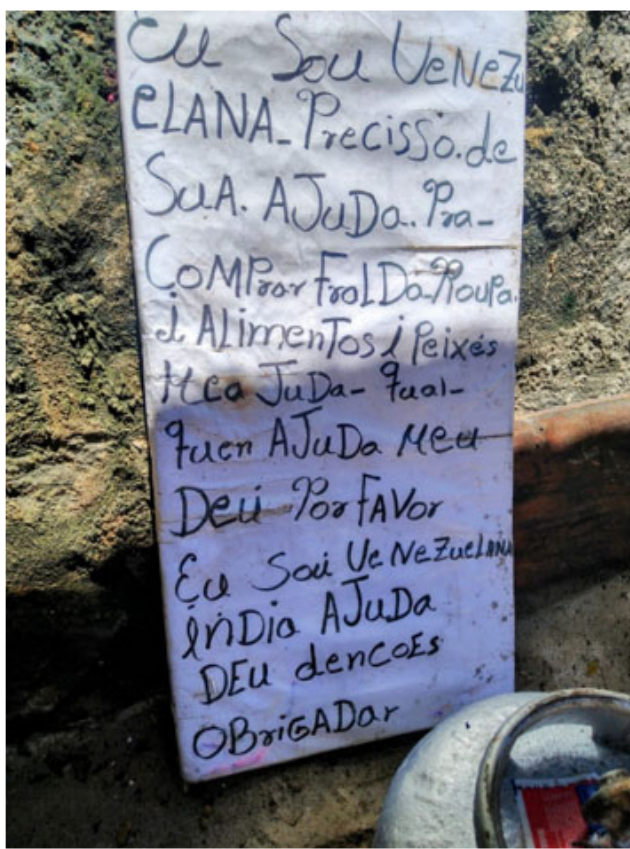 Eu Sou VeNeZu
eLANA-Precisso.de
SuA. AJuDa. Pra-
CoMPrar FrolDa-Roupa.
i ALimenTos i Peixes
Mea JuDa- qual-
quen AJuDa Meu
Deu PorfAVor
Eu Soui VeNeZueLANA
iNDia AJuDa
DEu dencoEs
OBriGADar